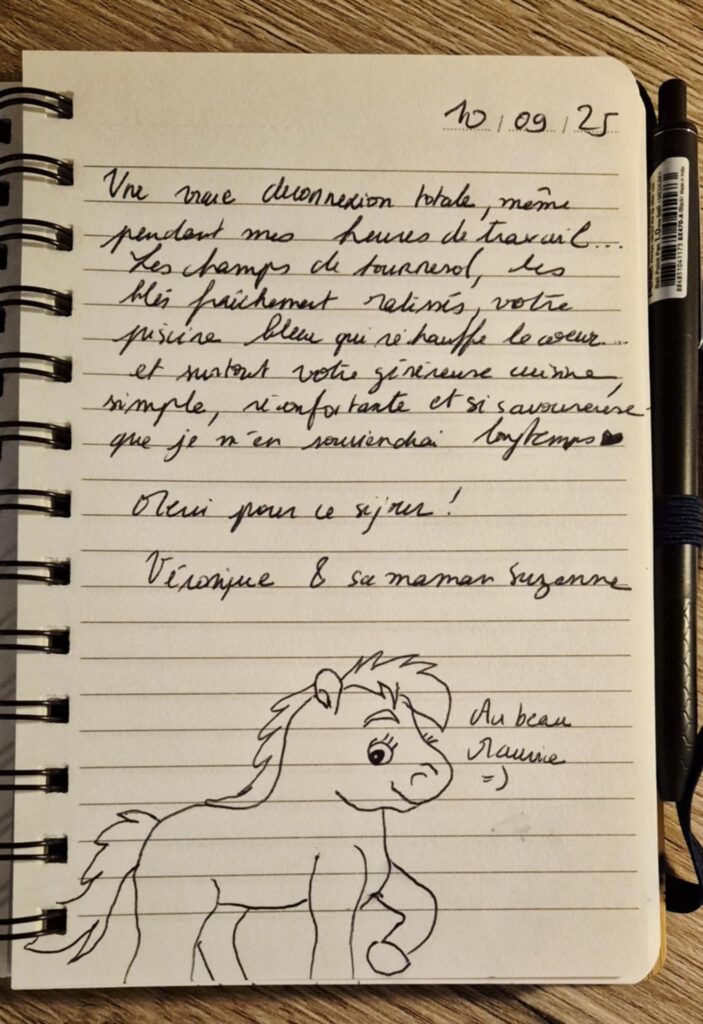 10 / 09 / 25
Une vraie deconnexion totale, même
pendant mes heures de travail...
Les champs de tournesol, les
blés fraîchement ratissés, votre
piscine bleue qui réchauffe le coeur...
et surtout votre généreuse cuisine,
simple, réconfortante et si savoureuse
que je m'en souviendrai longtemps
Merci pour ce séjour !
Véronique & sa maman Suzanne
Au beau
Maurice
=)